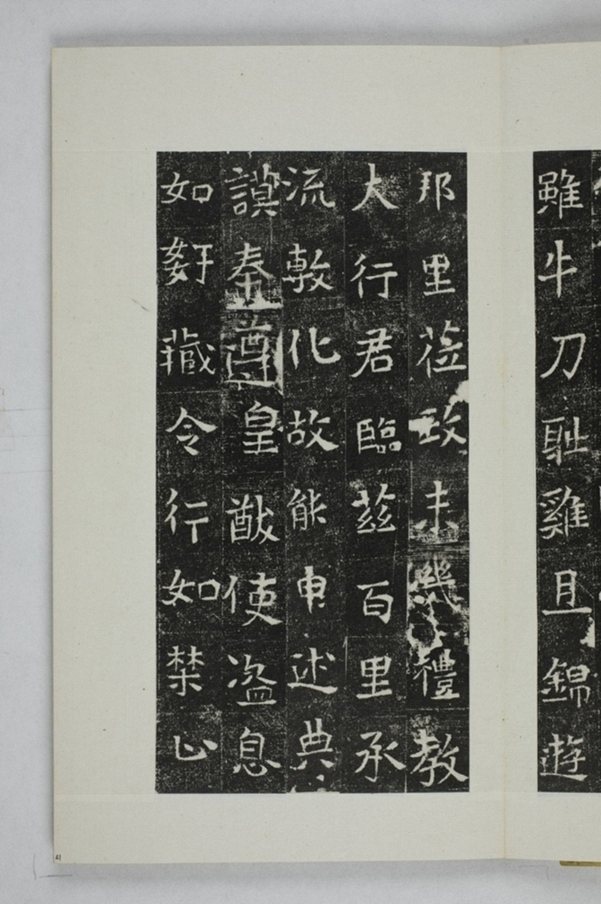 雖牛刀耻雞且錦遊
邦里莅政未熙禮教
大行君臨茲百里承
流敷化故能申述典
謨奉遵皇猷使盗息
如姧藏令行如禁止